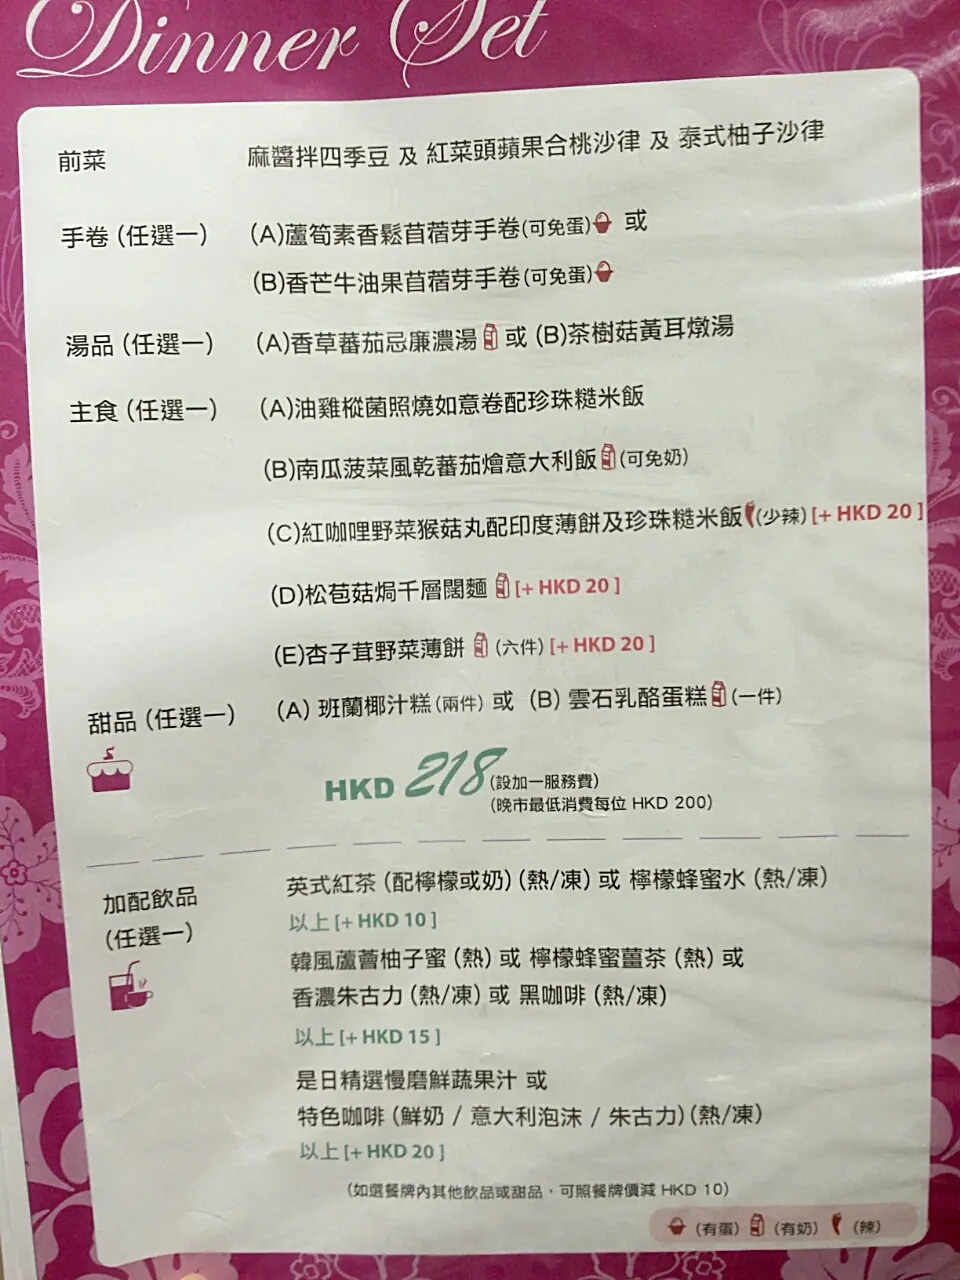 Dinner Set
前菜 麻醬拌四季豆 及 紅菜頭蘋果合桃沙律 及 泰式柚子沙律
手卷 (任選一) (A)蘆筍素香鬆苜蓿芽手卷(可免蛋) 或
(B)香芒牛油果苜蓿芽手卷(可免蛋)
湯品 (任選一) (A)香草蕃茄忌廉濃湯 或 (B)茶樹菇黃耳燉湯
主食 (任選一) (A)油雞樅菌照燒如意卷配珍珠糙米飯
(B)南瓜菠菜風乾蕃茄燴意大利飯(可免奶)
(C)紅咖哩野菜猴菇丸配印度薄餅及珍珠糙米飯(少辣) [+ HKD 20 ]
(D)松苞菇焗千層闊麵 [+ HKD 20 ]
(E)杏子茸野菜薄餅 (六件) [+ HKD 20 ]
甜品 (任選一) (A) 班蘭椰汁糕(兩件) 或 (B) 雲石乳酪蛋糕(一件)
HKD 218 (設加一服務費)
(晚市最低消費每位 HKD 200)
加配飲品 英式紅茶 (配檸檬或奶) (熱/凍) 或 檸檬蜂蜜水 (熱/凍)
(任選一) 以上 [+ HKD 10 ]
韓風蘆薈柚子蜜 (熱) 或 檸檬蜂蜜薑茶 (熱) 或
香濃朱古力 (熱/凍) 或 黑咖啡 (熱/凍)
以上 [+ HKD 15 ]
是日精選慢磨鮮蔬果汁 或
特色咖啡 (鮮奶 / 意大利泡沫 / 朱古力) (熱/凍)
以上 [+ HKD 20 ]
(如選餐牌內其他飲品或甜品，可照餐牌價減 HKD 10)
(有蛋) (有奶) (辣)